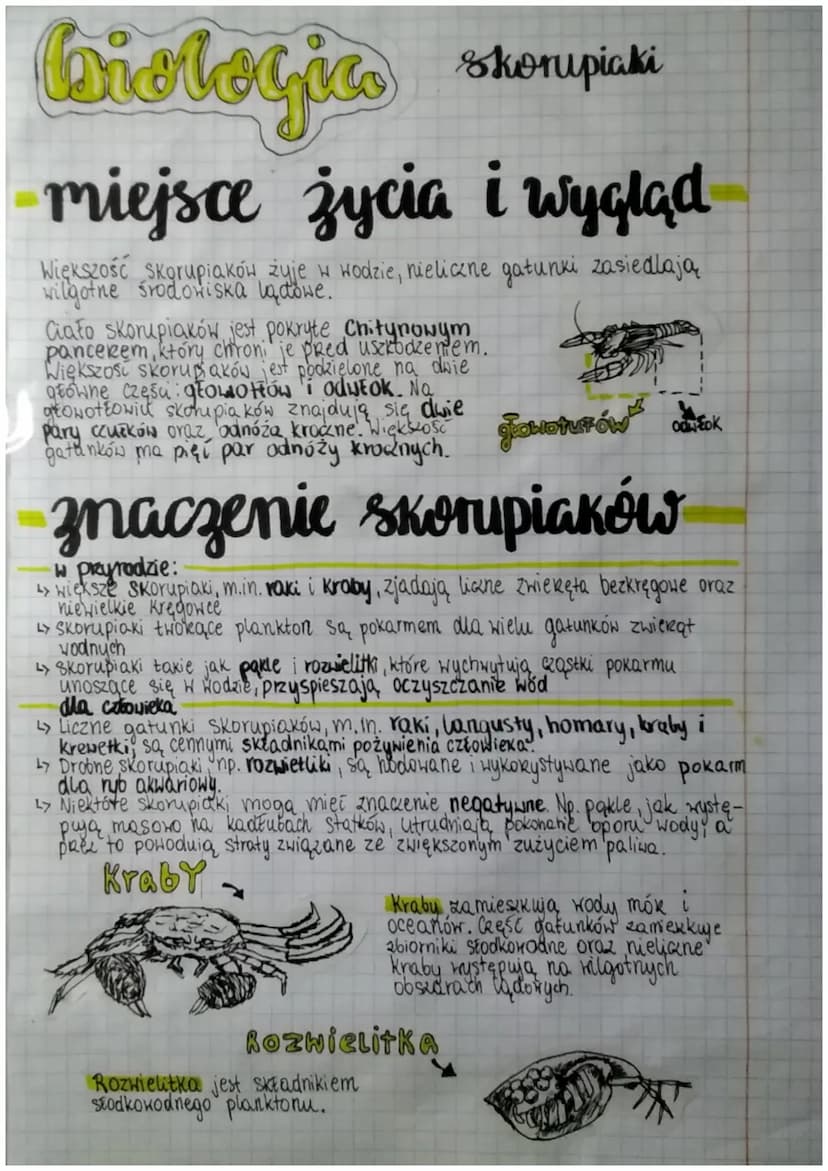 biologia
skorupiaki
miejsce życia i wygląd
Większość skorupiaków żyje w wodzie, nieliczne gatunki zasiedlają
wilgotne środowiska lądowe.
Ciało skorupiaków jest pokryte Chitynowym
pancerzem, który chroni je przed uszkodzeniem.
Większość skorupiaków jest podzielone na dwie
główne części: głowotłów i odwłok. Na
głowotłowiu skorupiaków znajdują się dwie
pary czułków oraz odnóża kroczne. Większość
gatunków ma pięć par odnóży krocznych.
głowotułów
odwłok
znaczenie skorupiaków
w przyrodzie:
↳ większe skorupiaki, m.in. raki i kraby, zjadają liczne zwierzęta bezkręgowe oraz
niewielkie kręgowce
↳ skorupiaki tworzące plankton są pokarmem dla wielu gatunków zwierząt
wodnych
↳ skorupiaki takie jak pąkle i rozwielitki, które wychwytują cząstki pokarmu
unoszące się w wodzie, przyspieszają oczyszczanie wód
dla człowieka
↳ Liczne gatunki skorupiaków, m.in. raki, langusty, homary, kraby i
krewetki, są cennymi składnikami pożywienia człowieka.
↳ Drobne skorupiaki, np. rozwietliki, są hodowane i wykorzystywane jako pokarm
dla ryb akwariowy.
↳ Niektóre skorupiaki mogą mieć znaczenie negatywne. Np. pąkle, jak wystę-
pują masowo na kadłubach statków, utrudniają pokonanie oporu wody, a
przez to powodują straty związane ze zwiększonym zużyciem paliwa.
Kraby
Kraby zamieszkują wody mórz i
oceanów. Część gatunków zamieszkuje
zbiorniki słodkowodne oraz nieliczne
kraby występują na wilgotnych
obszarach lądowych.
Rozwielitka
Rozwielitka jest składnikiem
słodkowodnego planktonu.